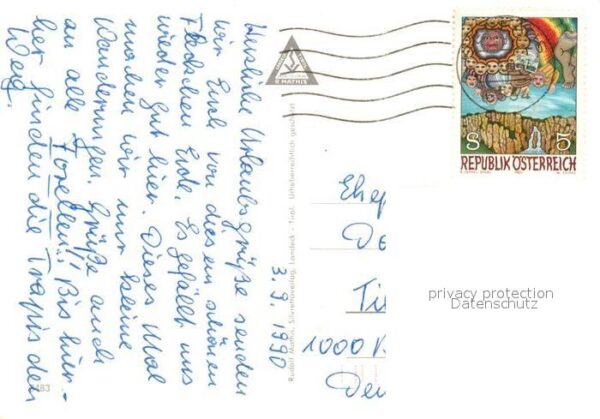 Herzliche Urlaubsgrüße senden
wir Euch von diesem schönen
Fleckchen Erde. Es gefällt uns
wieder gut hier. Dieses Mal
machen wir nur kleine
Wanderungen. Grüße auch
an alle Forellen!! Bis hier-
her finden die Trapis den
Weg!
3.9.1990
R MATHIS
Rudolf Mathis, Silvrettaverlag, Landeck - Tirol. Urheberrechtlich geschützt
S 5
REPUBLIK ÖSTERREICH
Ehep
De
Ti
1000 B
Deu
privacy protection
Datenschutz